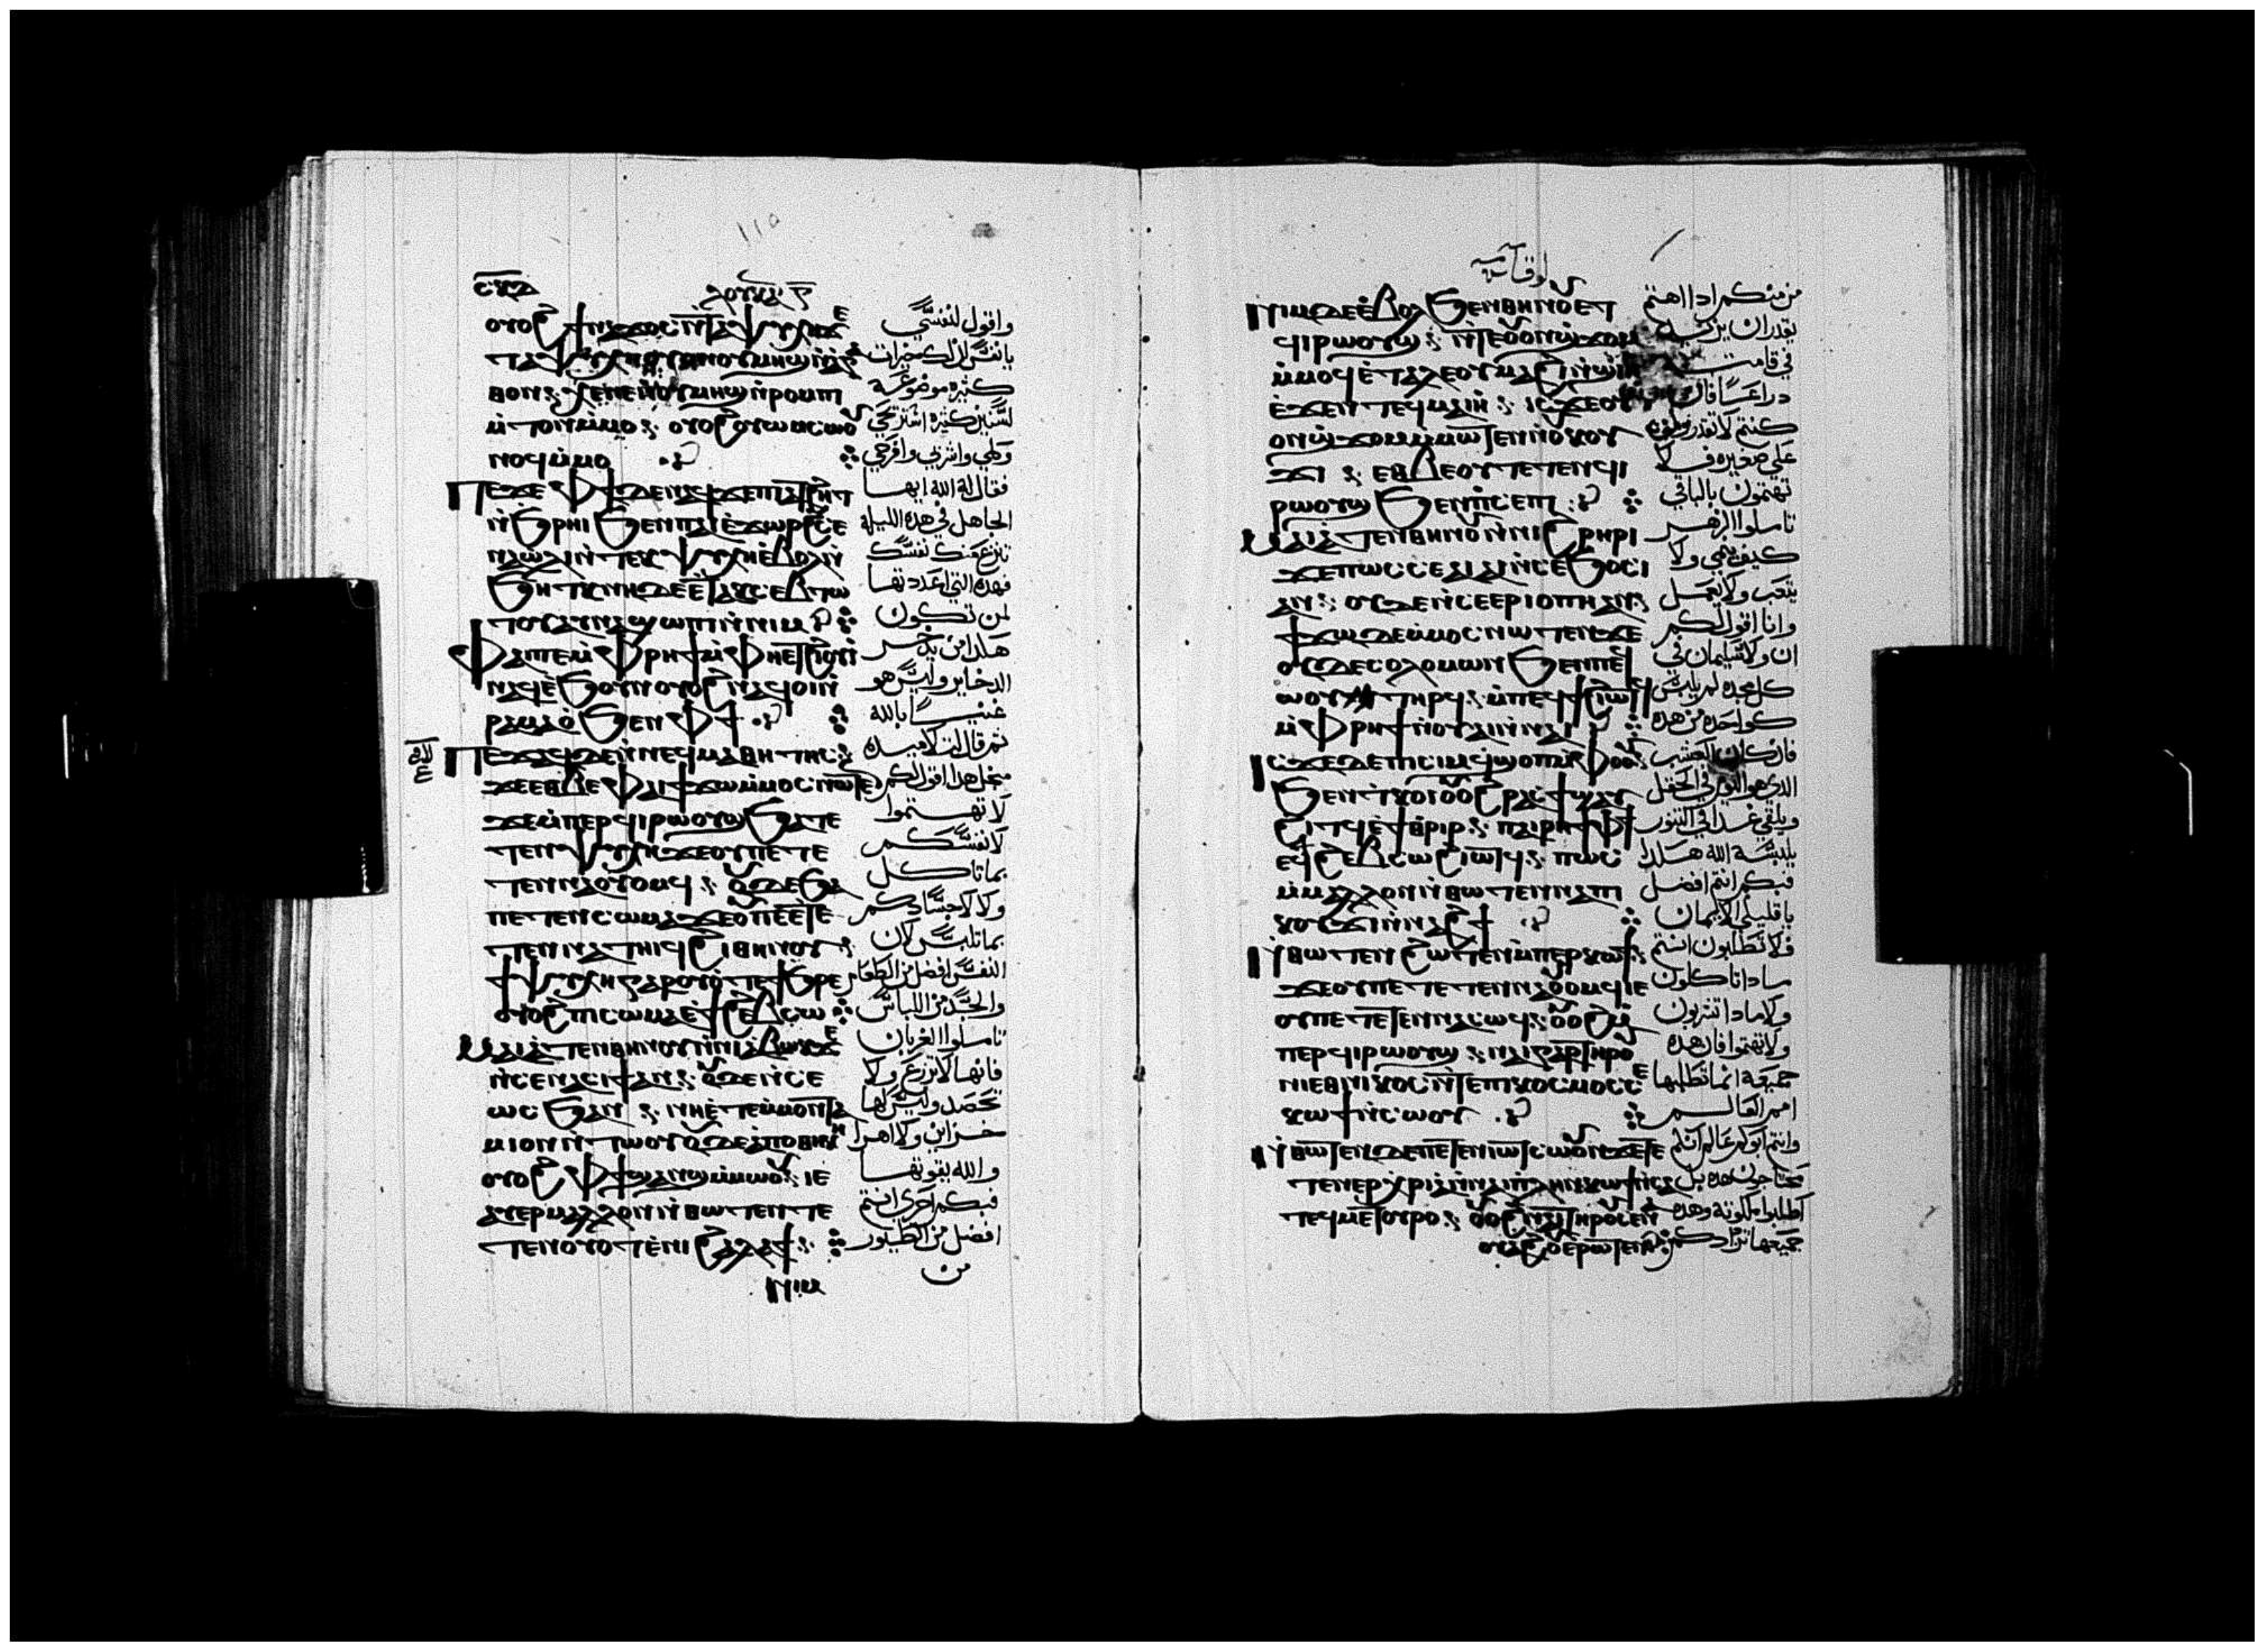 ⲥⲕⲇ
ⲗⲟⲩⲕⲁⲛ
ⲟⲩⲟϩ ϯⲛⲁϫⲟⲥ ⲛⲧⲁⲯⲩⲭⲏ ϫⲉ
ⲧⲁⲯⲩⲭⲏ ⲟⲩⲟⲛ ⲟⲩⲙⲏϣ ⲛⲁⲅⲁ
ⲑⲟⲛ ⲭⲏ ⲛⲉ ⲉⲩⲙⲏϣ ⲛⲣⲟⲙⲡⲓ
ⲙⲧⲟⲛ ⲙⲙⲟ ⲟⲩⲟϩ ⲟⲩⲱⲙ ⲥⲱ ⲟⲩ
ⲛⲟϥ ⲙⲙⲟ
Ⲡⲉϫⲉ ⲫϯ ⲇⲉ ⲛⲁϥ ϫⲉ ⲡⲓⲁⲧϩⲏⲧ
ⲛϧⲣⲏⲓ ϧⲉⲛ ⲡⲁⲓⲉϫⲱⲣϩ ⲥⲉ
ⲛⲁⲱⲗⲓ ⲛⲧⲉⲕⲯⲩⲭⲏ ⲉⲃⲟⲗ ⲛ
ϧⲏⲧⲕ ⲛⲏ ⲇⲉ ⲉⲧⲁⲕⲥⲉⲃⲧⲱ
ⲧⲟⲩ ⲁⲩⲛⲁϣⲱⲡⲓ ⲛⲛⲓⲙ
Ⲫⲁⲓ ⲡⲉ ⲙⲫⲣⲏϯ ⲙⲫⲏ ⲉⲧϩⲓⲟⲩⲓ
ⲛⲁϥ ⲉϧⲟⲩⲛ ⲟⲩⲟϩ ⲛⲁϥⲟⲓ ⲛ
ⲣⲁⲙⲁⲟ ϧⲉⲛ ⲫϯ ⲁⲛ
Ⲡⲉϫⲁϥ ⲇⲉ ⲛⲛⲉϥⲙⲁⲑⲏⲧⲏⲥ
ϫⲉ ⲉⲑⲃⲉ ⲫⲁⲓ ϯϫⲱ ⲙⲙⲟⲥ ⲛⲱⲧⲉⲛ
ϫⲉ ⲙⲡⲉⲣϥⲓⲣⲱⲟⲩϣ ϧⲁ ⲧⲉ
ⲧⲉⲛⲯⲩⲭⲏ ϫⲉ ⲟⲩ ⲡⲉⲧⲉ
ⲧⲉⲛⲛⲁⲟⲩⲟⲙϥ ⲟⲩⲇⲉ ϧⲁ
ⲡⲉⲧⲉⲛⲥⲱⲙⲁ ϫⲉ ⲟⲩ ⲡⲉⲧⲉ
ⲧⲉⲛⲛⲁⲧⲏⲓϥ ϩⲓ ⲑⲏⲛⲟⲩ
ϯⲯⲩⲭⲏ ⲅⲁⲣ ⲟⲩⲟⲧ ⲉϯϧⲣⲉ
ⲟⲩⲟϩ ⲡⲓⲥⲱⲙⲁ ⲉϯϩⲉⲃⲥⲱ
Ⲙⲁⲓⲁⲧⲉⲛ ⲑⲏⲛⲟⲩ ⲛⲛⲓⲁⲃⲱⲕ ϫⲉ
ⲛⲥⲉⲛⲁⲥⲓϯ ⲁⲛ ⲟⲩⲇⲉ ⲛⲥⲉ
ⲱⲥϧ ⲁⲛ ⲛⲏ ⲉⲧⲉ ⲙⲙⲟⲛ ⲧⲁ
ⲙⲓⲟⲛ ⲛⲧⲱⲟⲩ ⲟⲩⲇⲉ ⲁⲡⲟⲑⲏⲕⲏ
ⲟⲩⲟϩ ⲫϯ ϣⲁⲛϣ ⲙⲙⲱⲟⲩ ⲓⲉ
ⲁⲩⲏⲣ ⲙⲁⲗⲗⲟⲛ ⲛⲑⲱⲧⲉⲛ ⲧⲉ
ⲧⲉⲛⲟⲩⲟⲧ ⲉⲛⲓϩⲁⲗⲁϯ
ⲛⲓⲙ
واقول لنفسي
يا نفس لك خيرات
كثيره موضوعه
لسنين كثيره استريحي
وكلي واشربي وافرحي
فقال له الله ايها
الجاهل في هذه الليله
تنزع منك نفسك
فهذه التي اعددتها
لمن تكون
هكذا من يدخر
الدخاير وليس هو
غنيا بالله
ثم قال لتلاميده
من اجل هدا اقول لكم
لا تهتموا
لانفسكم
بما تاكل
ولا لاجسادكم
بما تلبس لان
النفس افضل من الطعام
والجسد من اللباس
تاملوا الغربان
فانها لا تزرع ولا
تحصد وليس لها
خزاين ولا اهرا
والله يقوتها
فبكم احري انتم
افضل من الطيور
من
لوقا
Ⲛⲓⲙ ⲇⲉ ⲉⲃⲟⲗ ϧⲉⲛ ⲑⲏⲛⲟⲩ ⲉⲧ
ϥⲓⲣⲱⲟⲩϣ ⲛⲧⲉ ⲟⲩⲟⲛϣϫⲟⲙ
ⲙⲙⲟϥ ⲉⲧⲁⲗⲉ ⲟⲩⲙⲁϩⲓ ⲛϣⲓⲏ
ⲉϫⲉⲛ ⲧⲉϥⲙⲁⲓⲏ ⲓⲥϫⲉ ⲟⲩ
ⲟⲛϣϫⲟⲙ ⲙⲙⲱⲧⲉⲛ ⲛⲟⲩⲕⲟⲩ
ϫⲓ ⲉⲑⲃⲉ ⲟⲩ ⲧⲉⲧⲉⲛϥⲓ
ⲣⲱⲟⲩϣ ϧⲉⲛ ⲡⲥⲉⲡⲓ
Ⲙⲁⲓⲁⲧⲉⲛ ⲑⲏⲛⲟⲩ ⲛⲛⲓϩⲣⲏⲣⲓ
ϫⲉ ⲡⲱⲥ ⲥⲉⲁⲓⲁⲓ ⲛⲥⲉϧⲟⲥⲓ
ⲁⲛ ⲟⲩⲇⲉ ⲛⲥⲉⲉⲣⲓⲟⲡⲏ ⲁⲛ
ϯϫⲱ ⲇⲉ ⲙⲙⲟⲥ ⲛⲱⲧⲉⲛ ϫⲉ
ⲟⲩⲇⲉ ⲥⲟⲗⲟⲙⲱⲛ ϧⲉⲛ ⲡⲉϥ
ⲱⲟⲩ ⲧⲏⲣϥ ⲙⲡⲉϥϯϩⲓⲱⲧϥ
ⲙⲫⲣⲏϯ ⲛⲟⲩⲁⲓ ⲛⲛⲁⲓ
Ⲓⲥϫⲉ ⲇⲉ ⲡⲓⲥⲓⲙ ϥϣⲟⲡ ⲙⲫⲟⲟⲩ
ϧⲉⲛ ⲧⲕⲟⲓ ⲟⲩⲟϩ ⲣⲁⲥϯ ϣⲁⲩ
ϩⲓⲧϥ ⲉϯⲑⲣⲓⲣ ⲡⲁⲓⲣⲏϯ ⲫϯ
ⲉϥϩⲉⲃⲥⲱ ϩⲓⲱⲧϥ ⲡⲱⲥ
ⲙⲁⲗⲗⲟⲛ ⲛⲑⲱⲧⲉⲛ ⲛⲁⲡⲓ
ⲕⲟⲩϫⲓ ⲛⲛⲁϩϯ
Ⲛⲑⲱⲧⲉⲛ ϩⲱⲧⲉⲛ ⲙⲡⲉⲣⲕⲱϯ
ϫⲉ ⲟⲩ ⲡⲉⲧⲉⲧⲉⲛⲛⲁⲟⲩⲟⲙϥ ⲓⲉ
ⲟⲩ ⲡⲉⲧⲉⲧⲉⲛⲛⲁⲥⲱϥ ⲟⲩⲟϩ ⲙ
ⲡⲉⲣϥⲓⲣⲱⲟⲩϣ ⲛⲁⲓ ⲅⲁⲣ ⲧⲏⲣⲟⲩ
ⲛⲓⲉⲑⲛⲓⲕⲟⲥ ⲛⲧⲉ ⲡⲓⲕⲟⲥⲙⲟⲥ ⲥⲉ
ⲕⲱϯ ⲛⲥⲱⲟⲩ
Ⲛⲑⲱⲧⲉⲛ ⲇⲉ ⲡⲉⲧⲉⲛⲓⲱⲧ ⲥⲱⲟⲩⲛ ϫⲉ ⲧⲉ
ⲧⲉⲛⲉⲣⲭⲣⲓⲁ ⲛⲛⲁⲓ ⲡⲗⲏⲛ ⲕⲱϯ ⲛⲥⲁ
ⲧⲉϥⲙⲉⲧⲟⲩⲣⲟ ⲟⲩⲟϩ ⲛⲁⲓ ⲧⲏⲣⲟⲩ ⲥⲉⲛ
ⲟⲩⲁϩⲟⲩ ⲉⲣⲱⲧⲉⲛ
من منكم ادا اهتم
يقدر ان يزيد
في قامته
دراعا فان
كنتم لا تقدرون
علي صغيره فلما
تهتمون بالباقي
تاملوا الزهر
كيف ينمي ولا
يتعب ولا يعمل
وانا اقول لكم
ان ولا سليمان في
كل مجده لم يلبس
كواحده من هذه
فان كان العشب
الدي هو اليوم في الحقل
ويلقي غدا في التنور
يلبسه الله هكدا
فبكم انتم افضل
يا قليلي الايمان
فلا تطلبون انتم
مادا تاكلون
ولا مادا تشربون
ولا تهتموا فان هذه
جميعها انما تطلبها
امم العالم
وانتم ابوكم عالم انكم
تحتاجون هذه بل
اطلبوا ملكوته وهذه
جميعها تزادكم